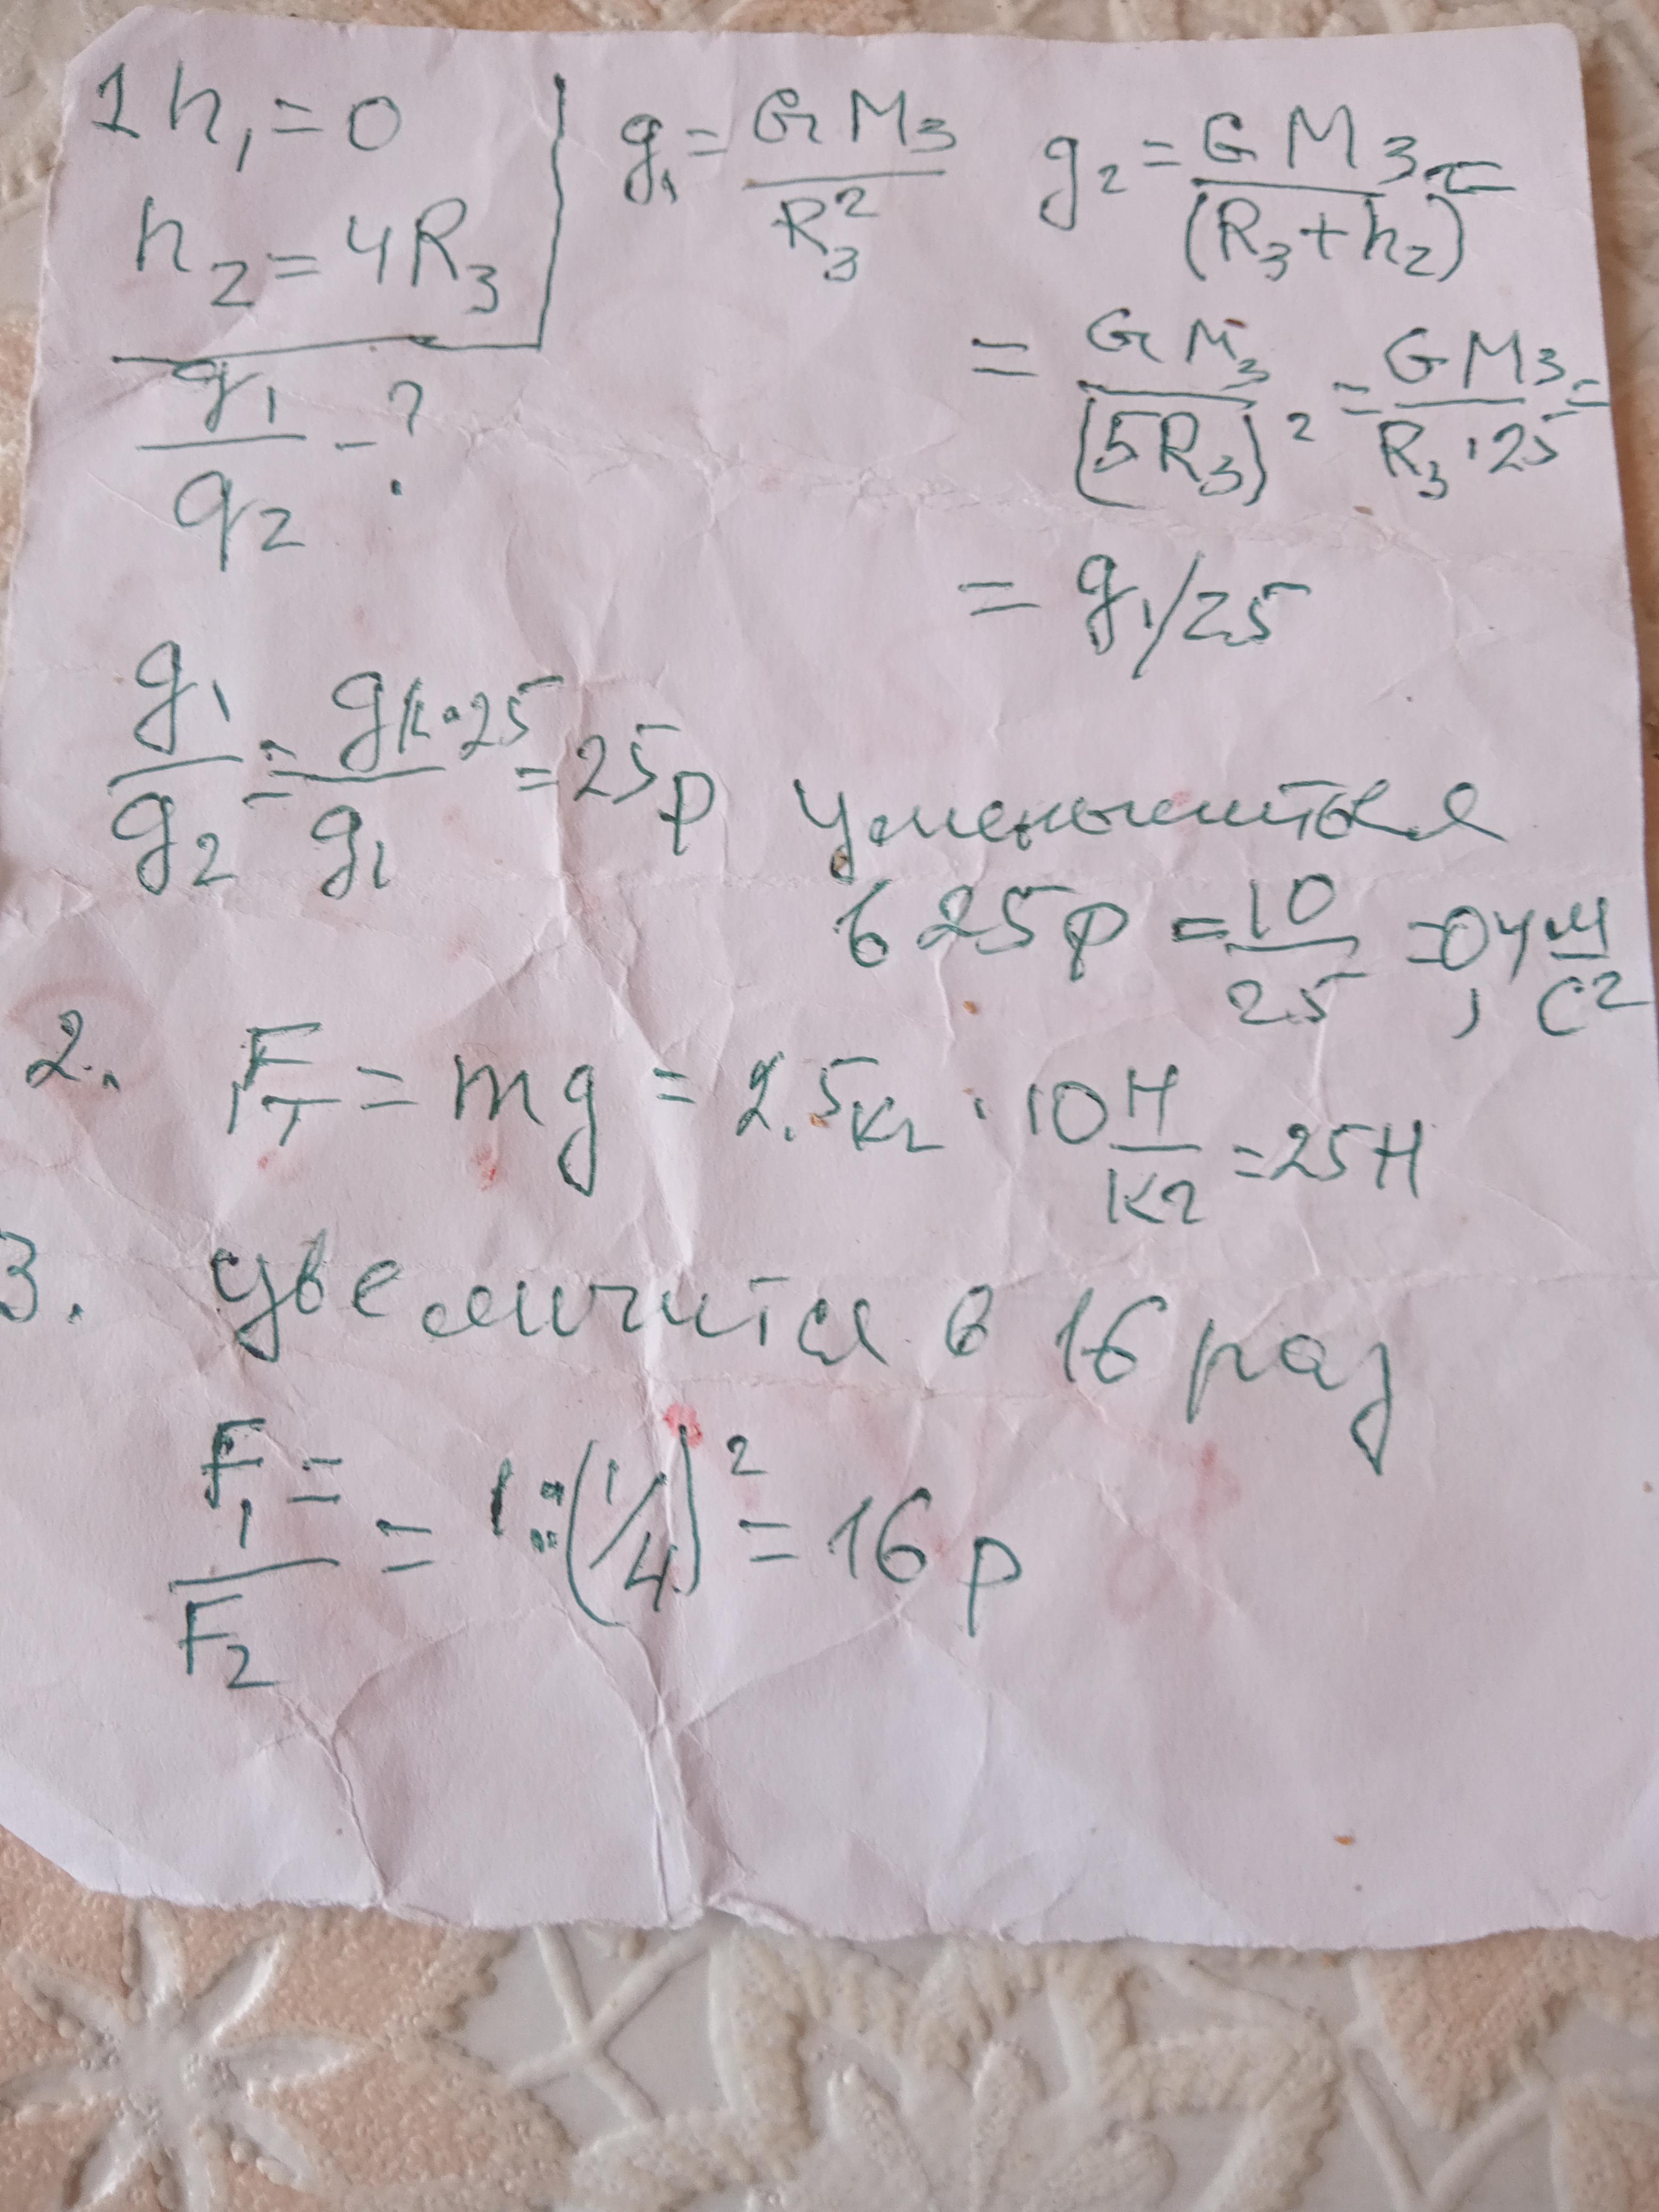 1 h₁ = 0
h₂ = 4R₃
g₁/g₂ - ?
g₁ = GM₃/R₃² g₂ = GM₃/(R₃+h₂) =
= GM₃/(5R₃)² = GM₃/R₃·25 =
= g₁/25
g₁/g₂ = g₁·25/g₁ = 25р уменьшится
в 25р = 10/25 = 0,4 м/с²
2. Fт = mg = 2.5кг · 10 Н/кг = 25Н
3. увеличится в 16 раз
F₁/F₂ = 1:(1/4)² = 16 р